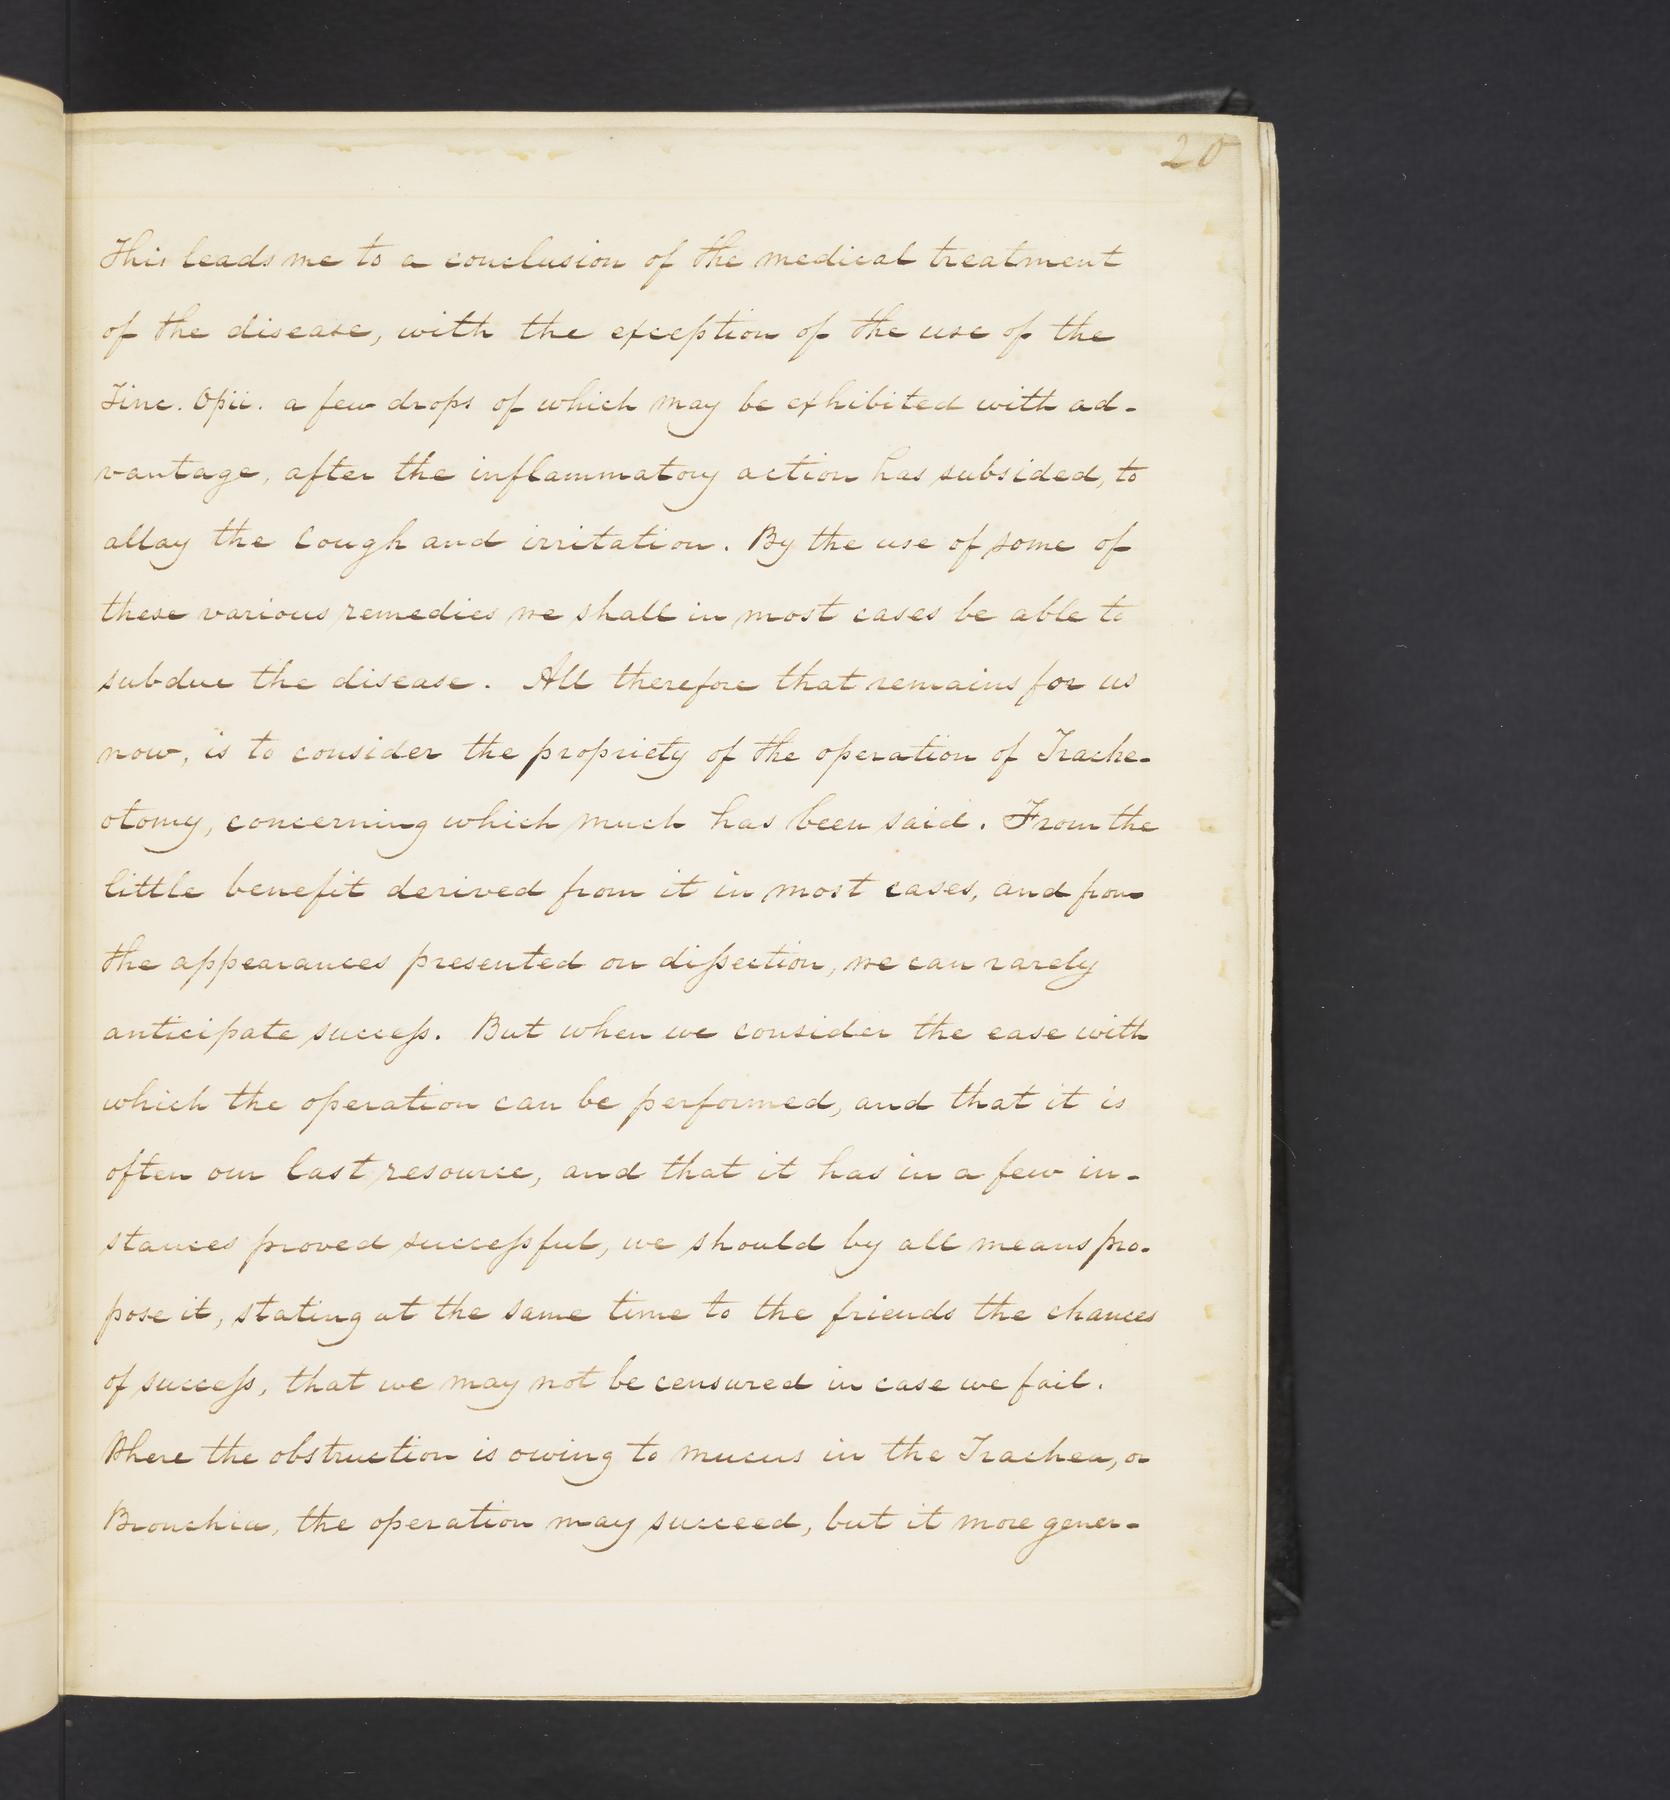 20
This leads me to a conclusion of the medical treatment
of the disease, with the exception of the use of the
Tinc. Opii. a few drops of which may be exhibited with ad-
vantage, after the inflammatory action has subsided, to
allay the cough and irritation. By the use of some of
these various remedies we shall in most cases be able to
subdue the disease. All therefore that remains for us
now, is to consider the propriety of the operation of Trache-
otomy, concerning which much has been said. From the
little benefit derived from it in most cases, and from
the appearances presented on dissection, we can rarely
anticipate success. But when we consider the ease with
which the operation can be performed, and that it is
often our last resource, and that it has in a few in-
stances proved successful, we should by all means pro-
pose it, stating at the same time to the friends the chances
of success, that we may not be censured in case we fail.
Where the obstruction is owing to mucus in the Trachea, or
Bronchia, the operation may succeed, but it more gener-